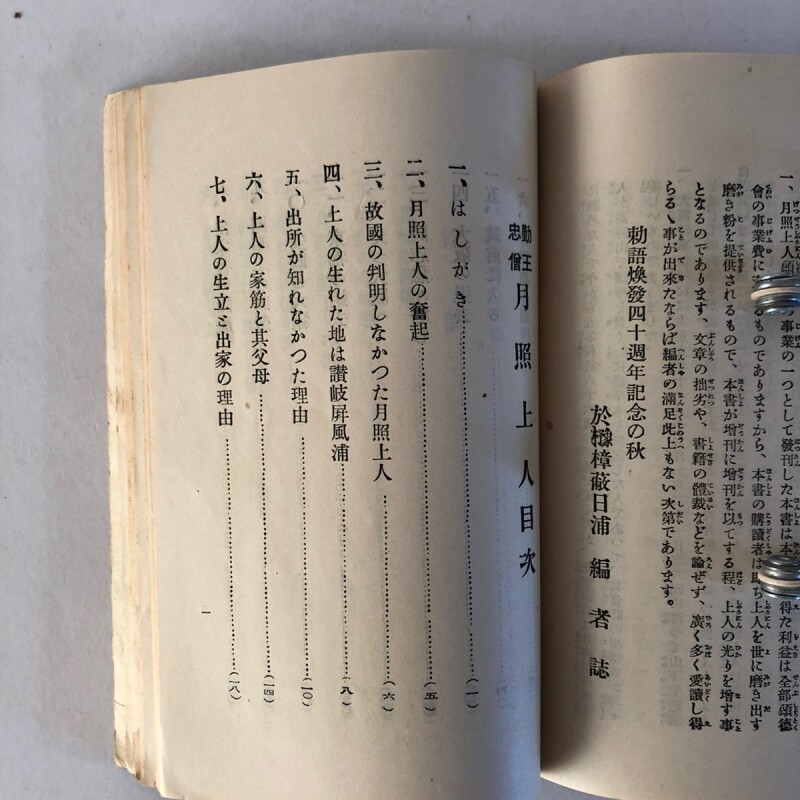 一、月照上人頌
の事業の一つとして發刊した本書は本
得た利益は全部頌德
會の事業費に
るものでありますから、本書の購讀者は即ち上人を世に磨き出す
磨き粉を提供されるもので、本書が増刊に増刊を以てする程、上人の光りを增す事
となるのであります、文章の拙劣や、書籍の體裁などを論ぜず、廣く多く愛讀し得
らるゝ事が出來たならば編者の滿足此上もない次第であります。
勅語煥發四十週年記念の秋
於樟蔽日浦 編者誌
勤王忠僧 月照上人目次
一、はしがき……(一)
二、月照上人の奮起……(五)
三、故國の判明しなかつた月照上人……(六)
四、上人の生れた地は讃岐屏風浦……(八)
五、出所が知れなかつた理由……(一〇)
六、上人の家筋と其父母……(一四)
七、上人の生立と出家の理由……(一八)
一